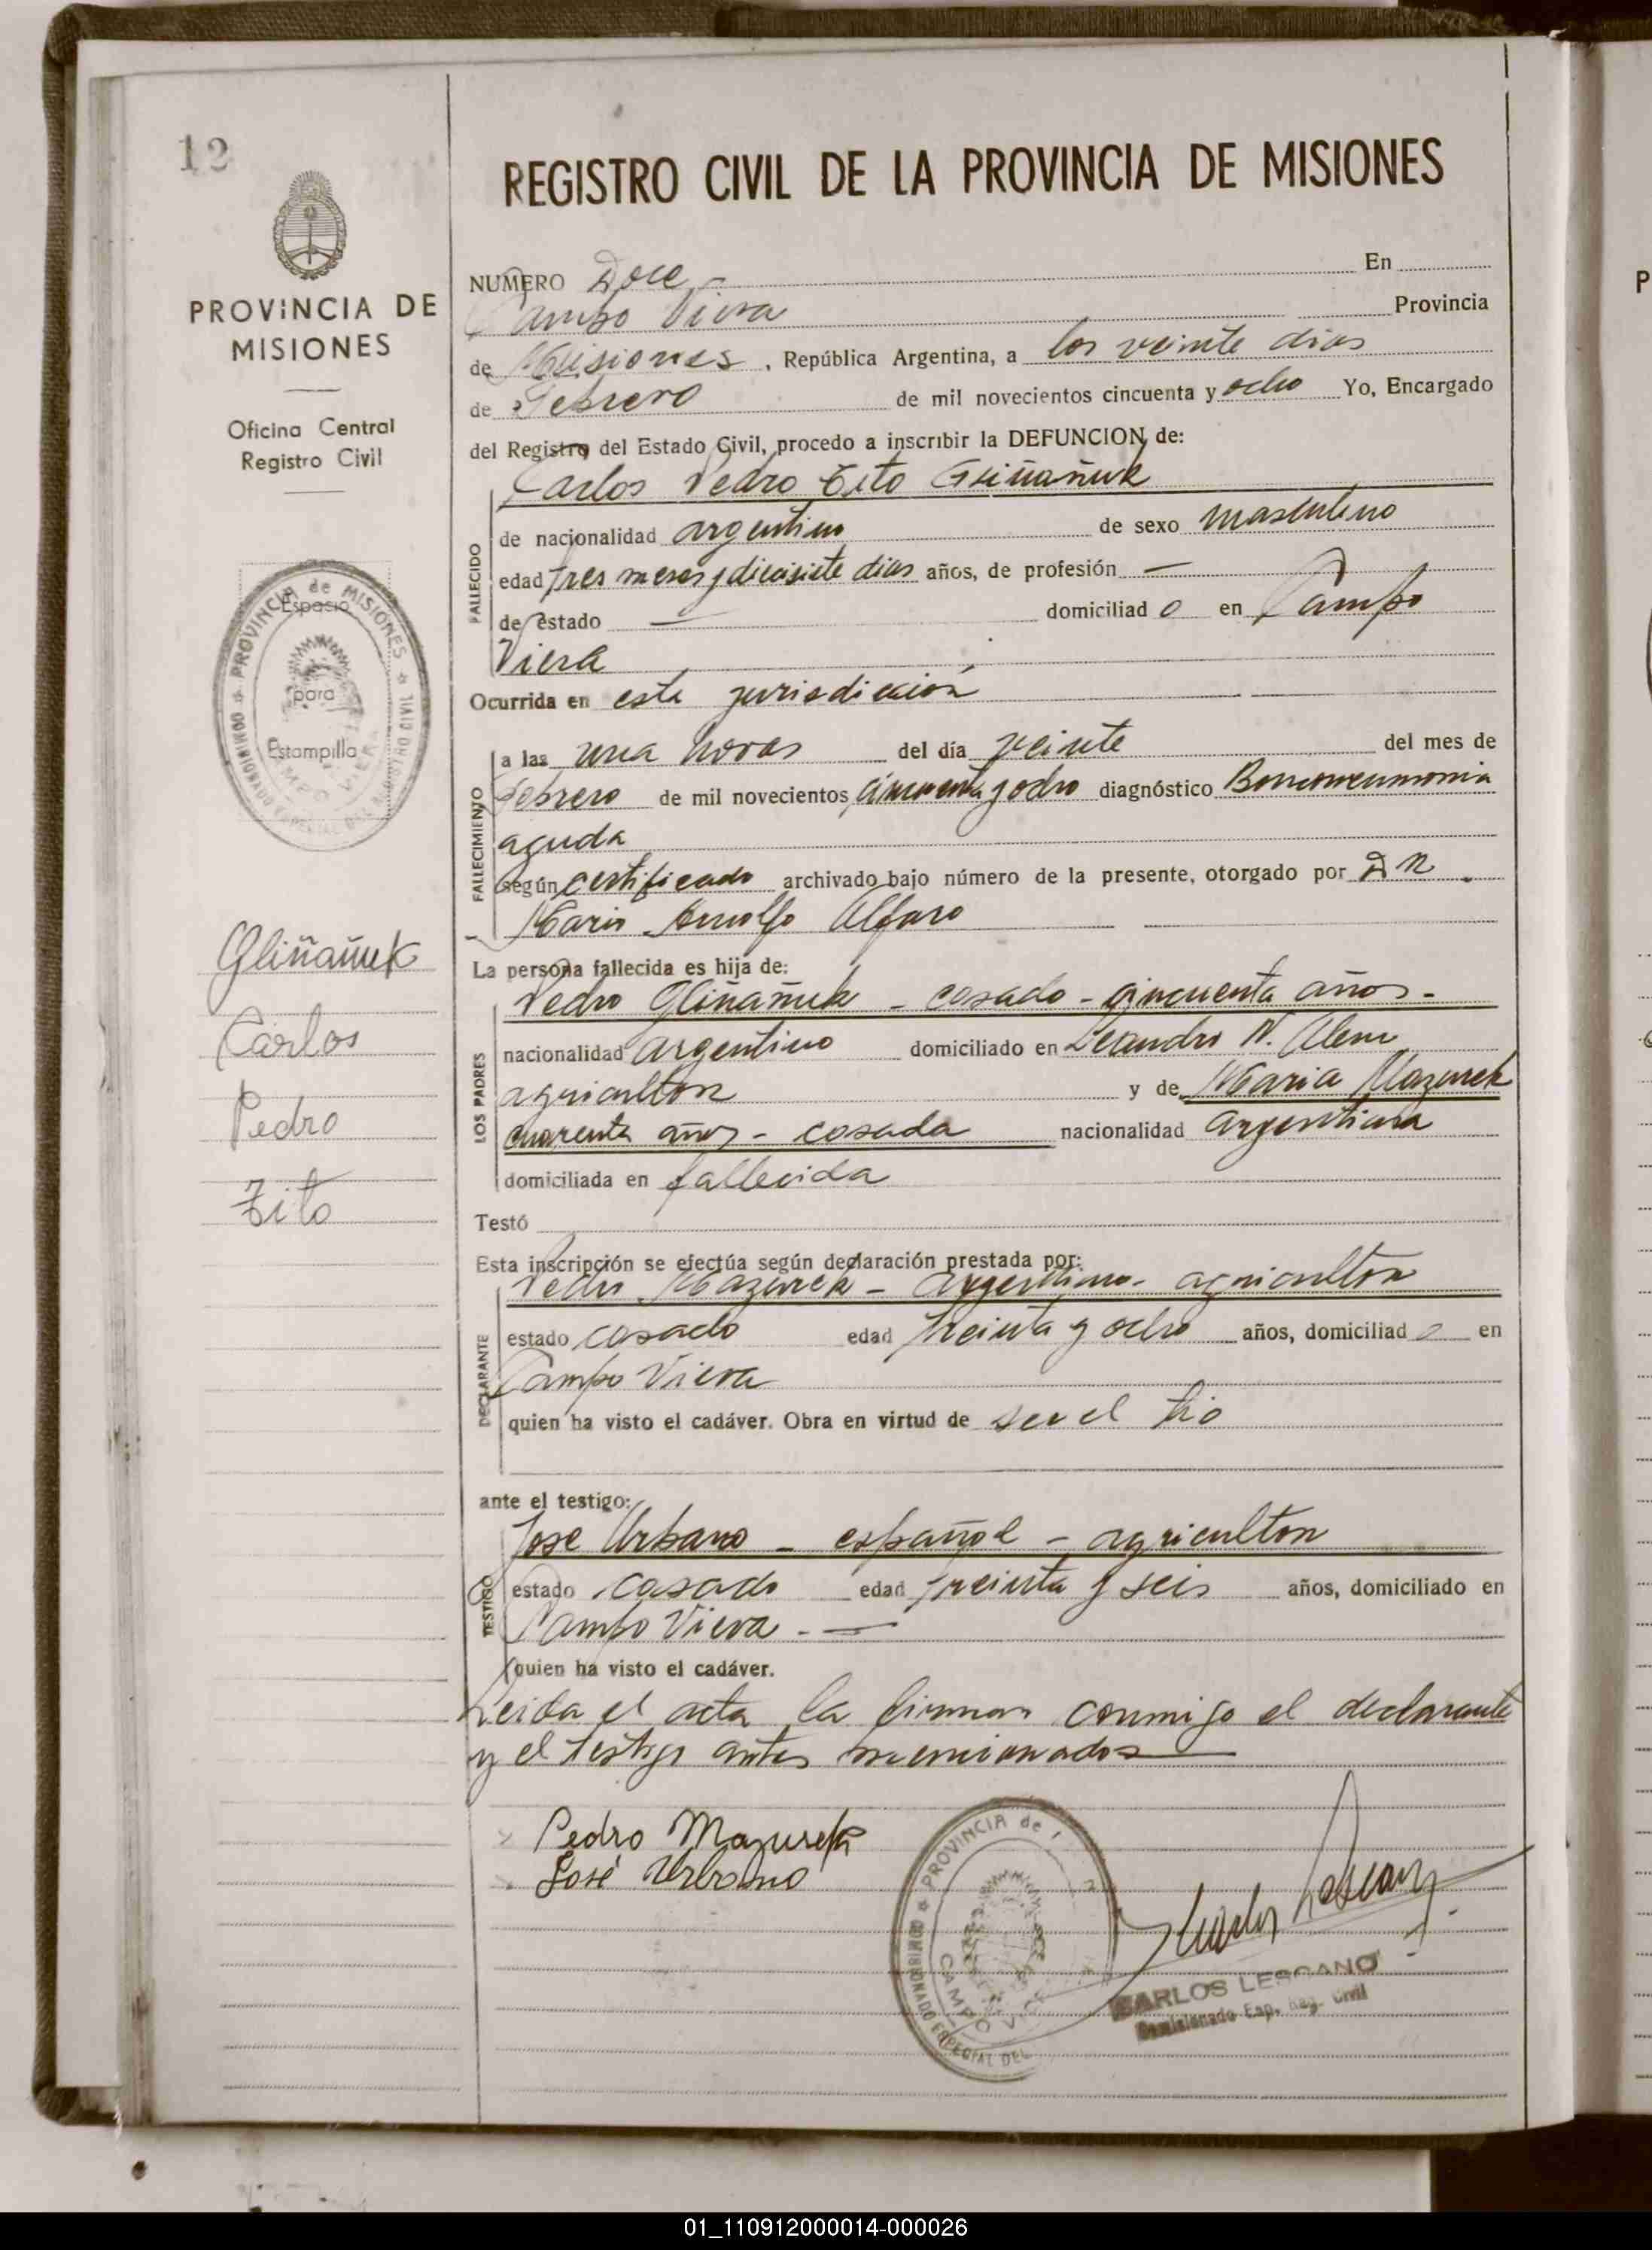 12
PROVINCIA DE
MISIONES
Oficina Central
Registro Civil
PROVINCIA de MISIONES
Espacio
para
Estampilla
Gliñañuk
Carlos
Pedro
Tito
REGISTRO CIVIL DE LA PROVINCIA DE MISIONES
NUMERO Doce En
Campo Viera Provincia
de Misiones, República Argentina, a los veinte dias
de Febrero de mil novecientos cincuenta y ocho Yo, Encargado
del Registro del Estado Civil, procedo a inscribir la DEFUNCION de:
Carlos Pedro Tito Gliñañuk
FALLECIDO
de nacionalidad argentino de sexo masculino
edad tres meses y diecisiete dias años, de profesión —
de estado — domiciliad o en Campo
Viera
Ocurrida en esta jurisdicción
FALLECIMIENTO
a las una horas del día veinte del mes de
Febrero de mil novecientos cincuenta y ocho diagnóstico Bonconeumonia
aguda
según certificado archivado bajo número de la presente, otorgado por Dr.
Mario Arnolfo Alfaro
La persona fallecida es hija de:
LOS PADRES
Pedro Gliñañuk - casado - cincuenta años -
nacionalidad argentino domiciliado en Leandro N. Alem
agricultor y de Maria Mazurek
cuarenta años - casada nacionalidad argentina
domiciliada en fallecida
Testó
Esta inscripción se efectúa según declaración prestada por:
DECLARANTE
Pedro Mazurek - argentino - agricultor
estado casado edad treinta y ocho años, domiciliad o en
Campo Viera
quien ha visto el cadáver. Obra en virtud de ser el tio
ante el testigo:
TESTIGO
Jose Urbano - español - agricultor
estado casado edad treinta y seis años, domiciliado en
Campo Viera. —
quien ha visto el cadáver.
Leida el acta la firman conmigo el declarante
y el testigo antes mencionados
Pedro Mazurek
José Urbano
PROVINCIA de
COMISIONADO ESPECIAL DEL
CAMPO
Carlos Lescano
CARLOS LESCANO
Comisionado Esp. Reg. Civil
P
01_110912000014-000026